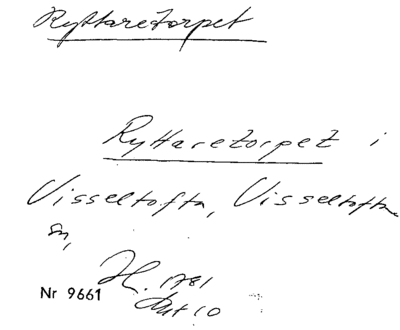 Ryttaretorpet
Ryttaretorpet i
Visseltofta, Visseltofta
sn,
H. 1781
Akt 10
Nr 9661